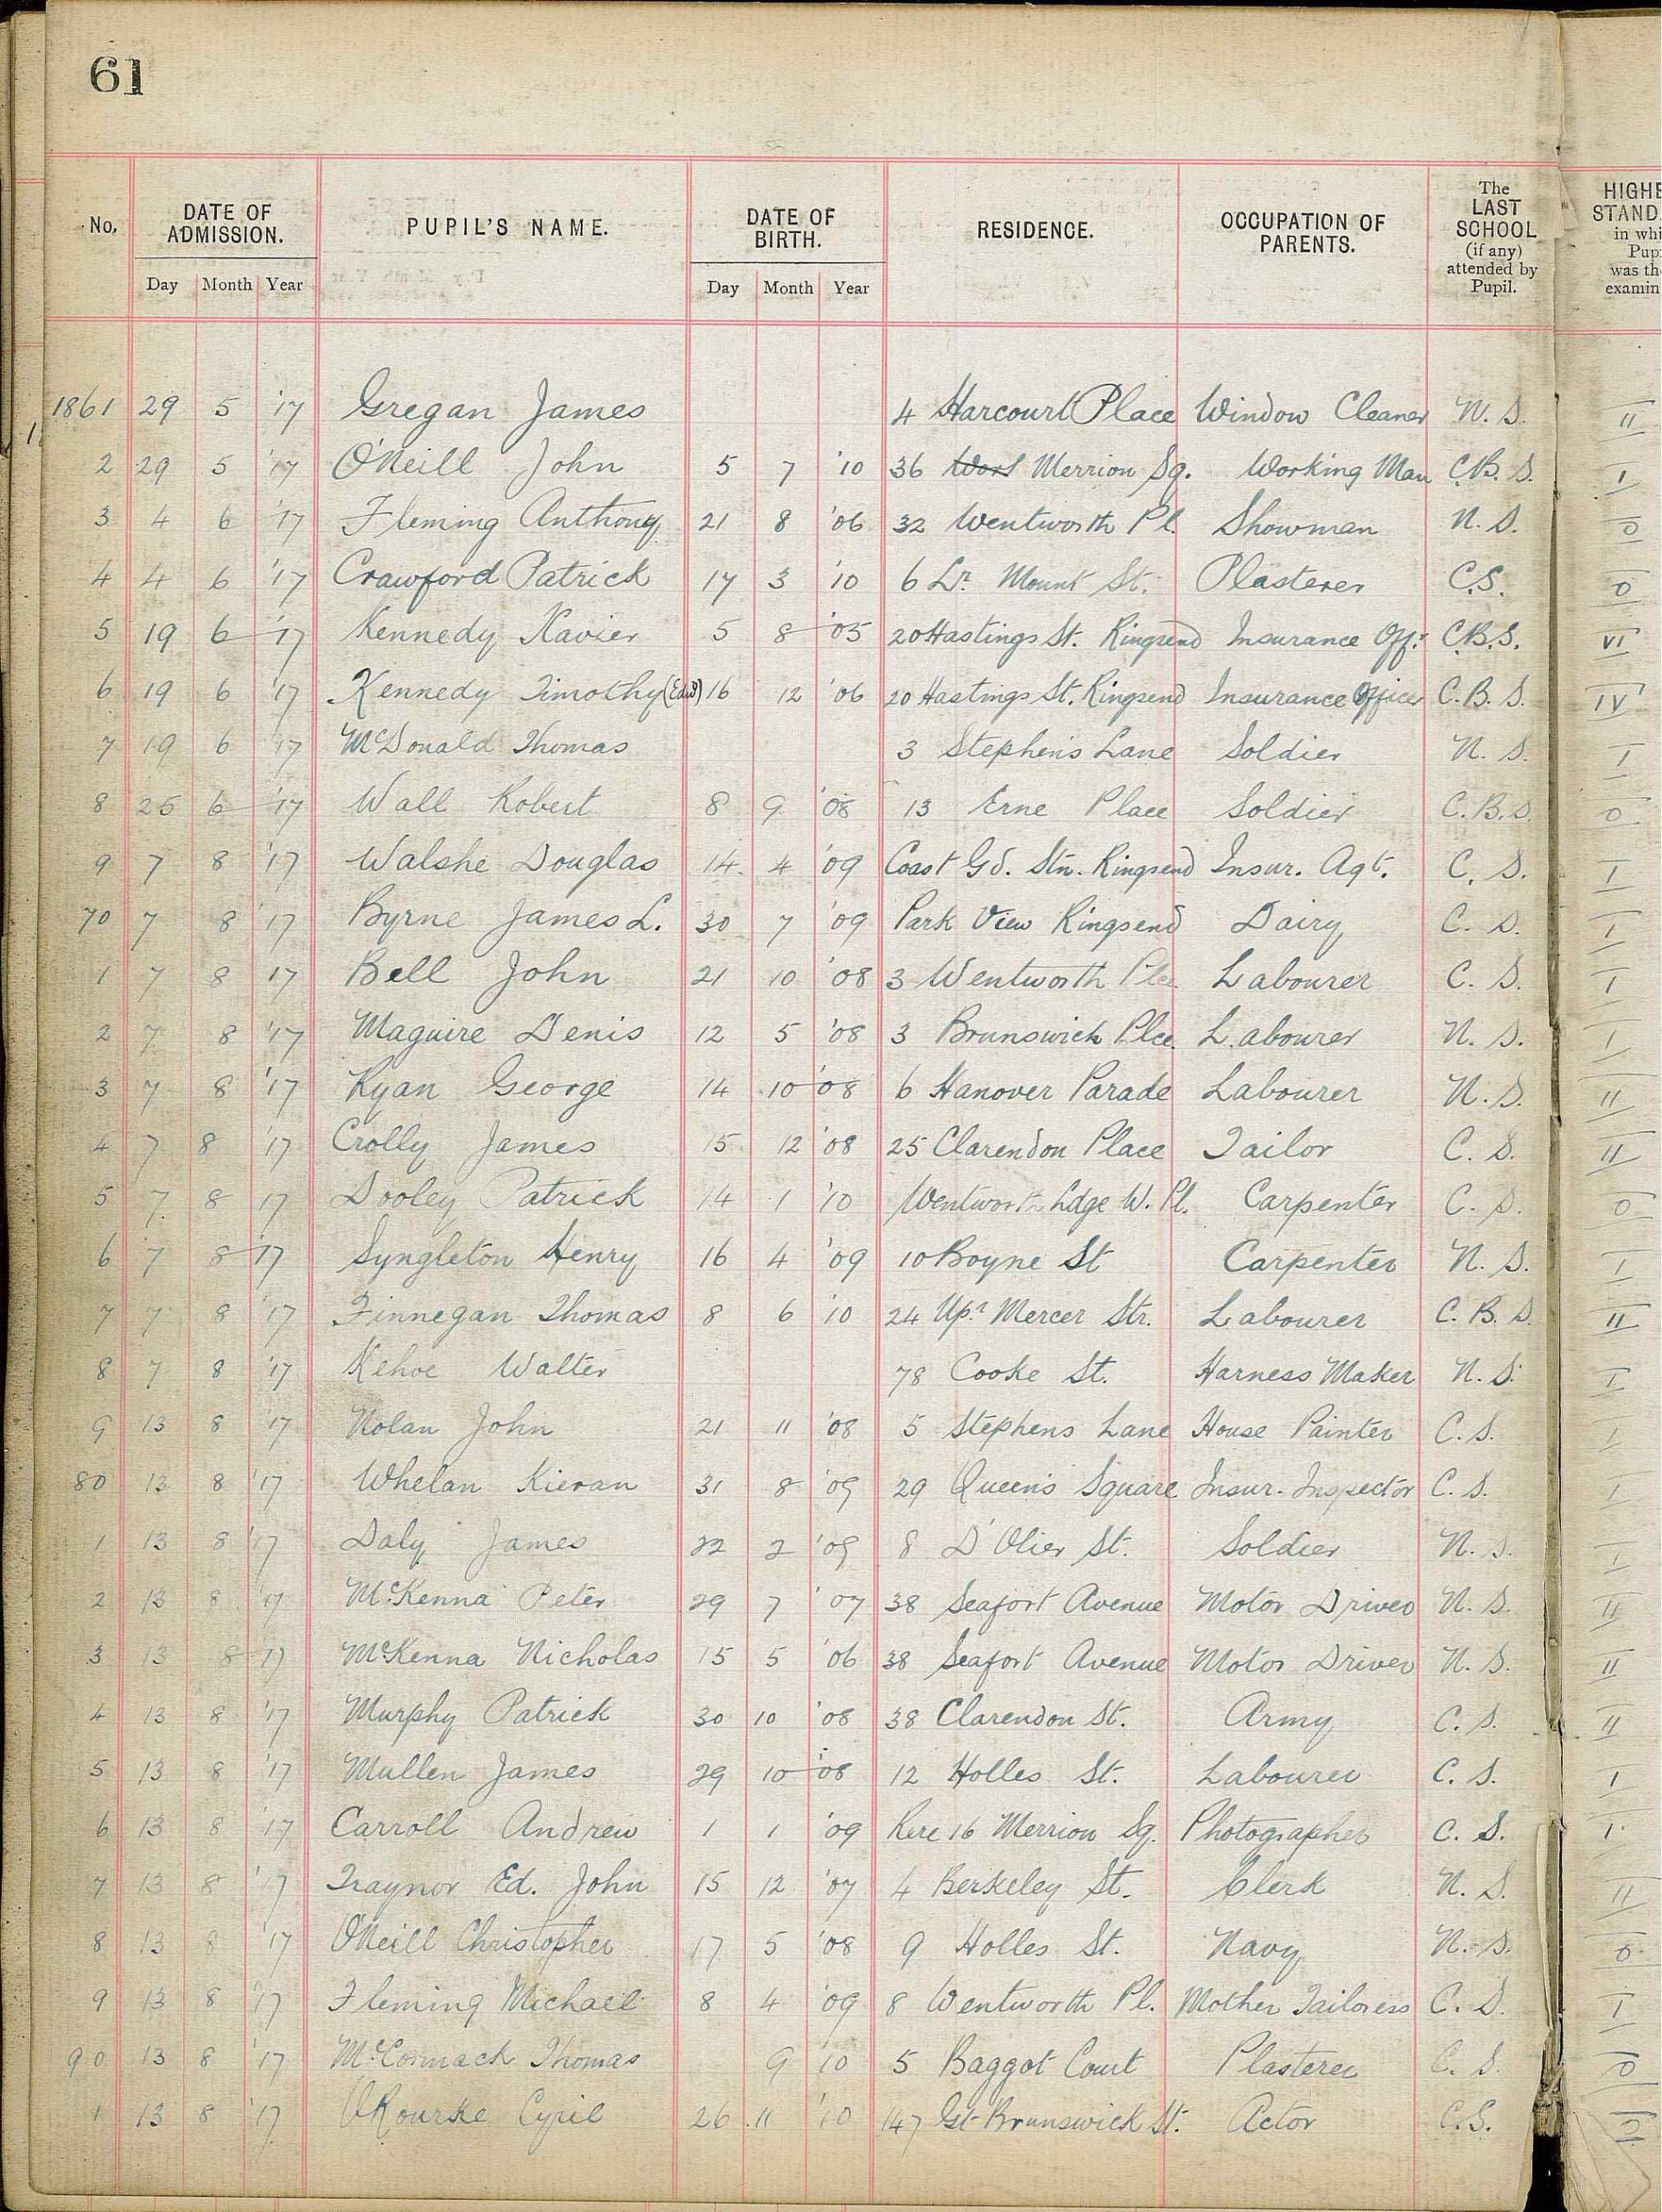 61
No. DATE OF ADMISSION. PUPIL'S NAME. DATE OF BIRTH. RESIDENCE. OCCUPATION OF PARENTS. The LAST SCHOOL (if any) attended by Pupil. HIGHE STAND. in whi Pup was th examin
Day Month Year Day Month Year
1861 29 5 '17 Gregan James 4 Harcourt Place Window Cleaner N. S. II
2 29 5 '17 O'Neill John 5 7 '10 36 Merrion Sq. Working Man C.B. S. I
3 4 6 '17 Fleming Anthony 21 8 '06 32 Wentworth Pl. Showman N. S. 0
4 4 6 '17 Crawford Patrick 17 3 '10 6 Lr. Mount St. Plasterer C.S. 0
5 19 6 '17 Kennedy Xavier 5 8 '05 20 Hastings St. Ringsend Insurance Offr. C.B.S. VI
6 19 6 '17 Kennedy Timothy (Edwd) 16 12 '06 20 Hastings St. Ringsend Insurance Officer C.B. S. IV
7 19 6 '17 McDonald Thomas 3 Stephen's Lane Soldier N. S. I
8 25 6 '17 Wall Robert 8 9 '08 13 Erne Place Soldier C.B.S. 0
9 7 8 '17 Walshe Douglas 14 4 '09 Coast Gd. Stn. Ringsend Insur. Agt. C. S. I
70 7 8 '17 Byrne James L. 30 7 '09 Park View Ringsend Dairy C. S. I
1 7 8 '17 Bell John 21 10 '08 3 Wentworth Plce Labourer C. S. I
2 7 8 '17 Maguire Denis 12 5 '08 3 Brunswick Plce. Labourer N. S. I
3 7 8 '17 Ryan George 14 10 '08 6 Hanover Parade Labourer N. S. II
4 7 8 '17 Crolly James 15 12 '08 25 Clarendon Place Tailor C. S. II
5 7 8 '17 Dooley Patrick 14 1 '10 Wentworth Ldge W. Pl. Carpenter C. S. 0
6 7 8 '17 Syngleton Henry 16 4 '09 10 Boyne St Carpenter N. S. I
7 7 8 '17 Finnegan Thomas 8 6 '10 24 Upr. Mercer Str. Labourer C. B. S. II
8 7 8 '17 Kehoe Walter 78 Cooke St. Harness Maker N. S. I
9 13 8 '17 Nolan John 21 11 '08 5 Stephens Lane House Painter C. S. I
80 13 8 '17 Whelan Kieran 31 8 '09 29 Queen's Square Insur. Inspector C. S. I
1 13 8 '17 Daly James 22 2 '09 8 D'Olier St. Soldier N. S. I
2 13 8 '17 McKenna Peter 29 7 '07 38 Seafort Avenue Motor Driver N. S. II
3 13 8 '17 McKenna Nicholas 15 5 '06 38 Seafort Avenue Motor Driver N. S. II
4 13 8 '17 Murphy Patrick 30 10 '08 38 Clarendon St. Army C. S. II
5 13 8 '17 Mullen James 29 10 '08 12 Holles St. Labourer C. S. I
6 13 8 '17 Carroll Andrew 1 1 '09 Rere 16 Merrion Sq. Photographer C. S. I
7 13 8 '17 Traynor Ed. John 15 12 '07 4 Berkeley St. Clerk N. S. II
8 13 8 '17 O'Neill Christopher 17 5 '08 9 Holles St. Navy N. S. 0
9 13 8 '17 Fleming Michael 8 4 '09 8 Wentworth Pl. Mother Tailoress C. S. I
90 13 8 '17 McCormack Thomas 9 '10 5 Baggot Court Plasterer C. S. 0
1 13 8 '17 O'Rourke Cyril 26 11 '10 147 Gt Brunswick St. Actor C.S.